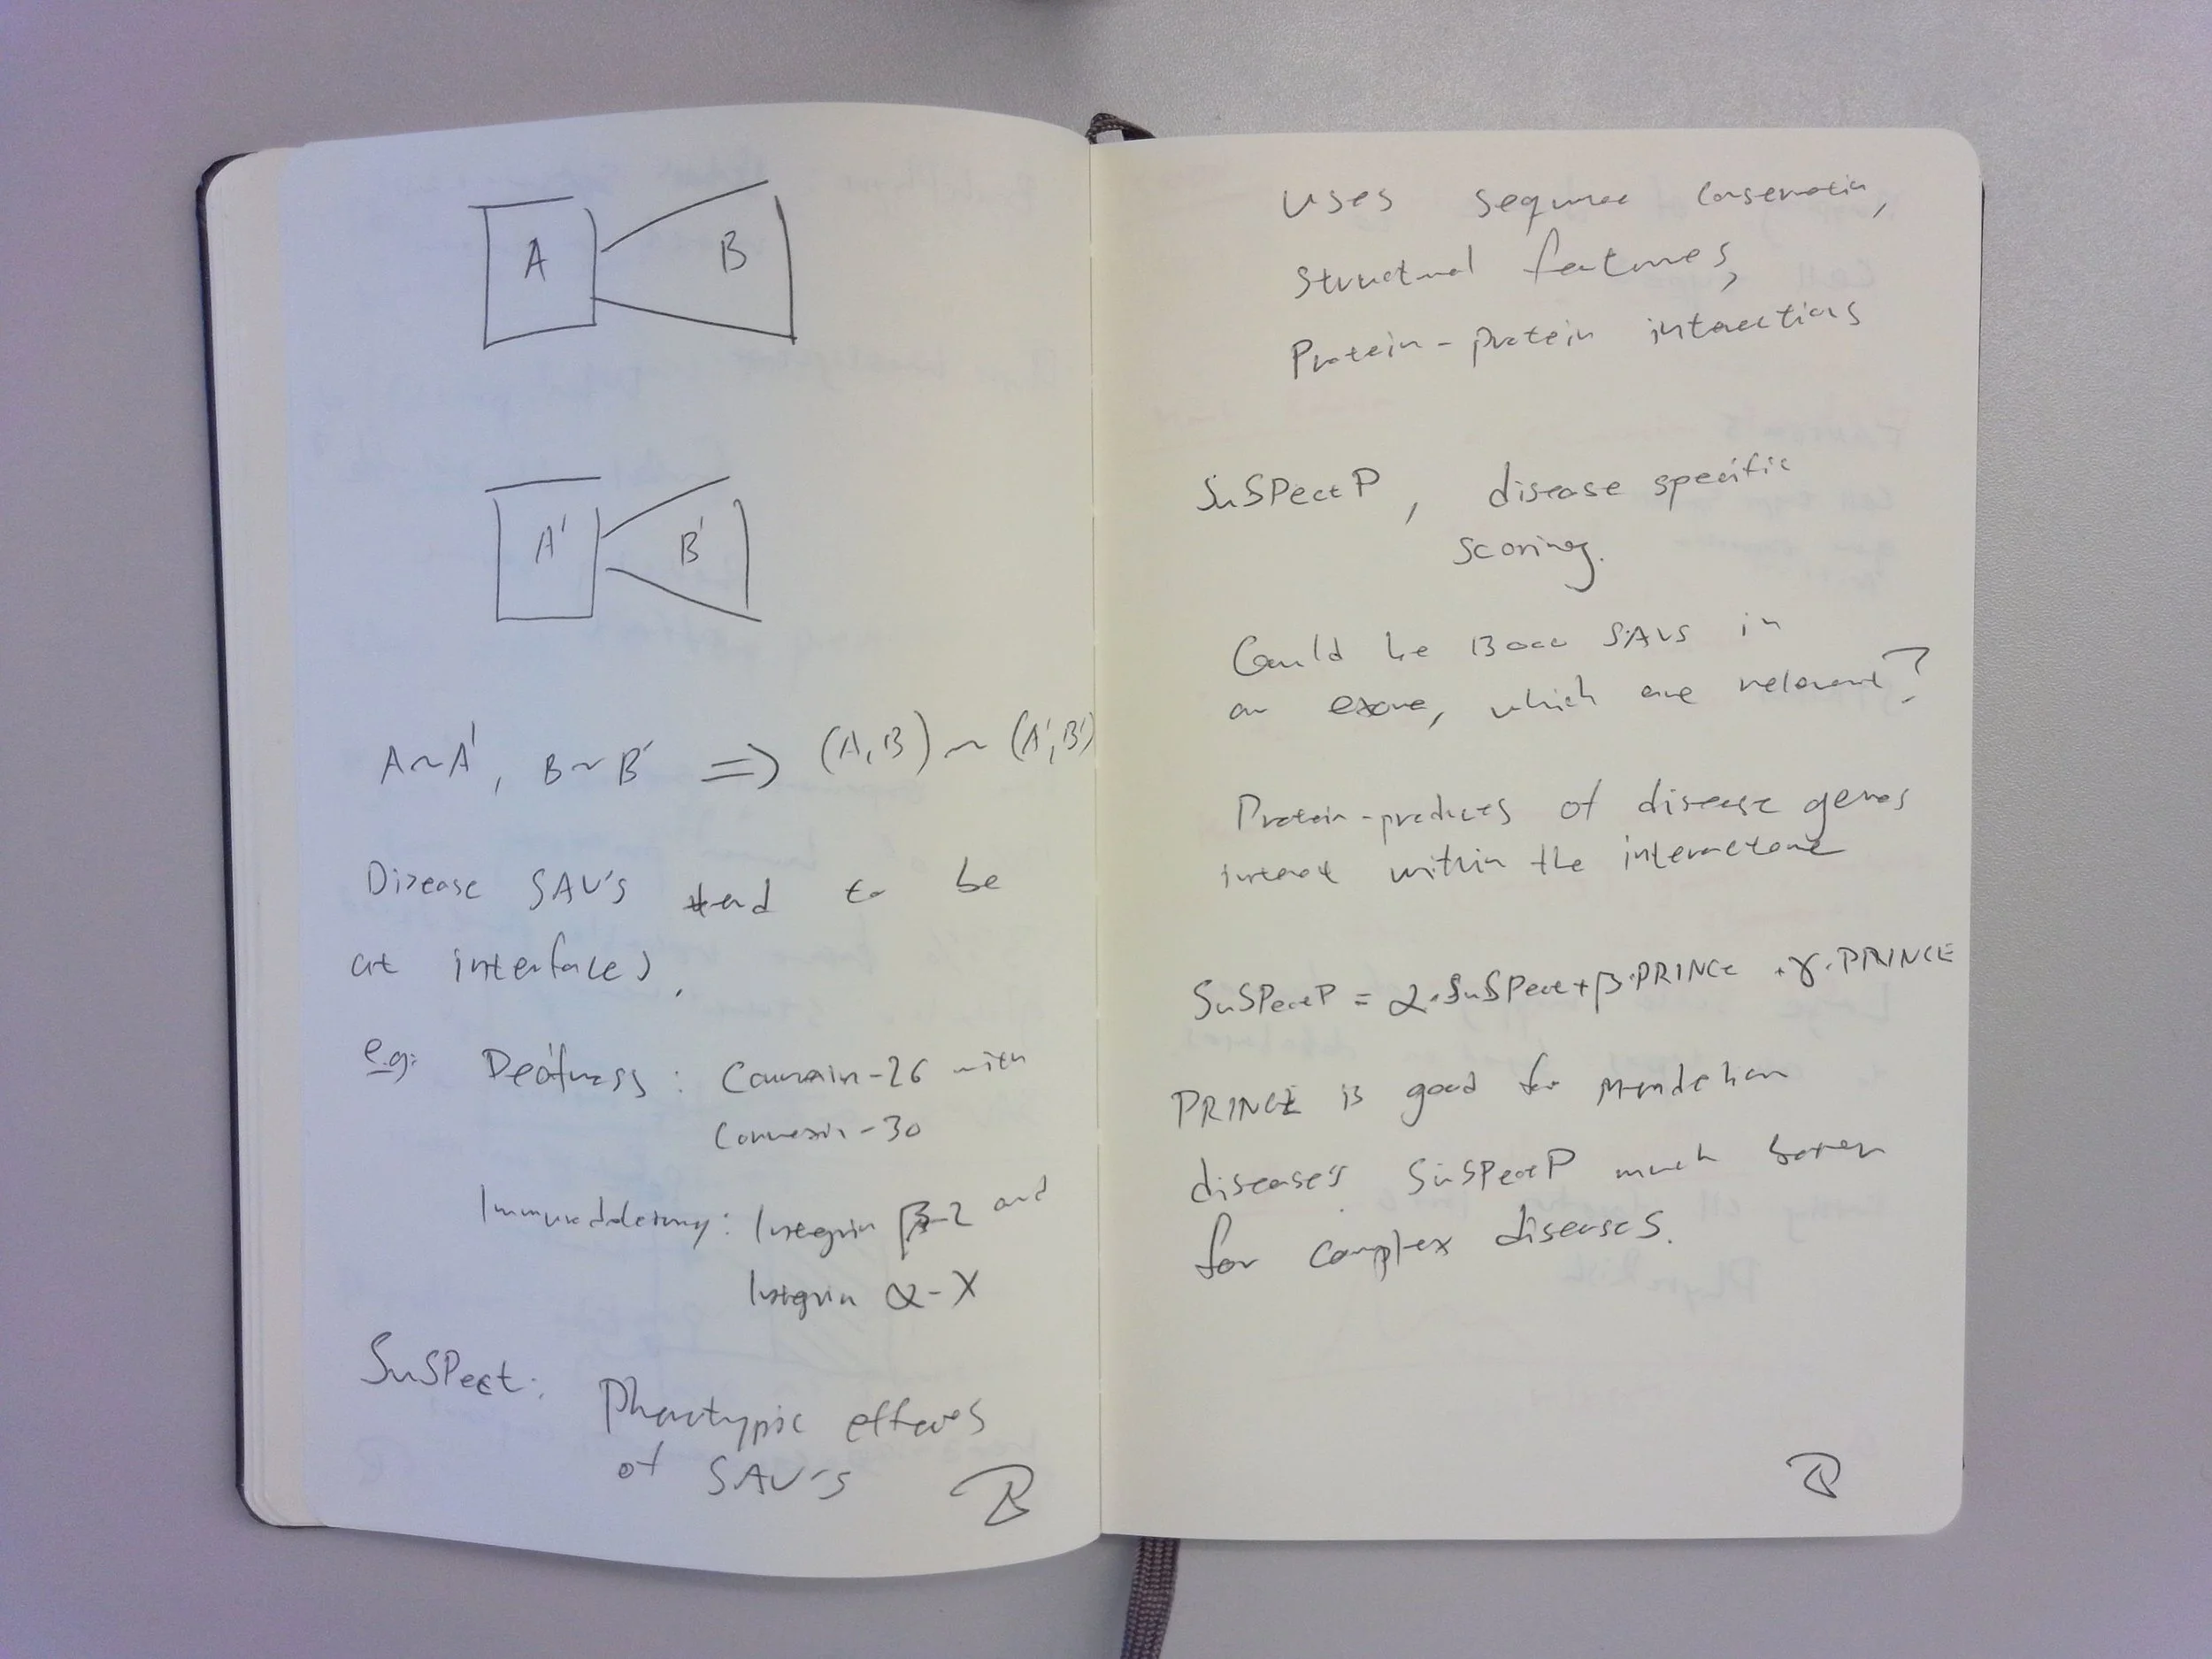 A
B
A'
B'
A~A', B~B' => (A,B) ~ (A',B')
Disease SAV's tend to be
at interfaces,
e.g: Deafness: Connexin-26 with
Connexin-30
Immunodeficiency: Integrin β-2 and
Integrin α-X
SuSPect: Phenotypic effects
of SAV's
uses sequence conservation,
structural features,
Protein-protein interactions
SuSPectP, disease specific
scoring.
Could be 13000 SAVs in
an exome, which are relevant?
Protein-products of disease genes
interact within the interactome
SuSPectP = α·SuSPect+β·PRINCE +γ·PRINCE
PRINCE is good for mendelian
diseases SuSPectP much better
for complex diseases.